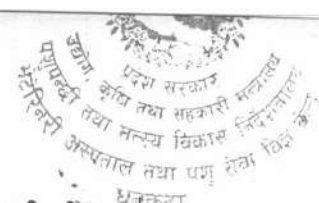 प्रदेश सरकार
उद्योग, कृषि तथा सहकारी मन्त्रालय
पशुपन्छी तथा मत्स्य विकास निर्देशनालय
भेटेरिनरी अस्पताल तथा पशु सेवा विज्ञ केन्द्र
धनकुटा